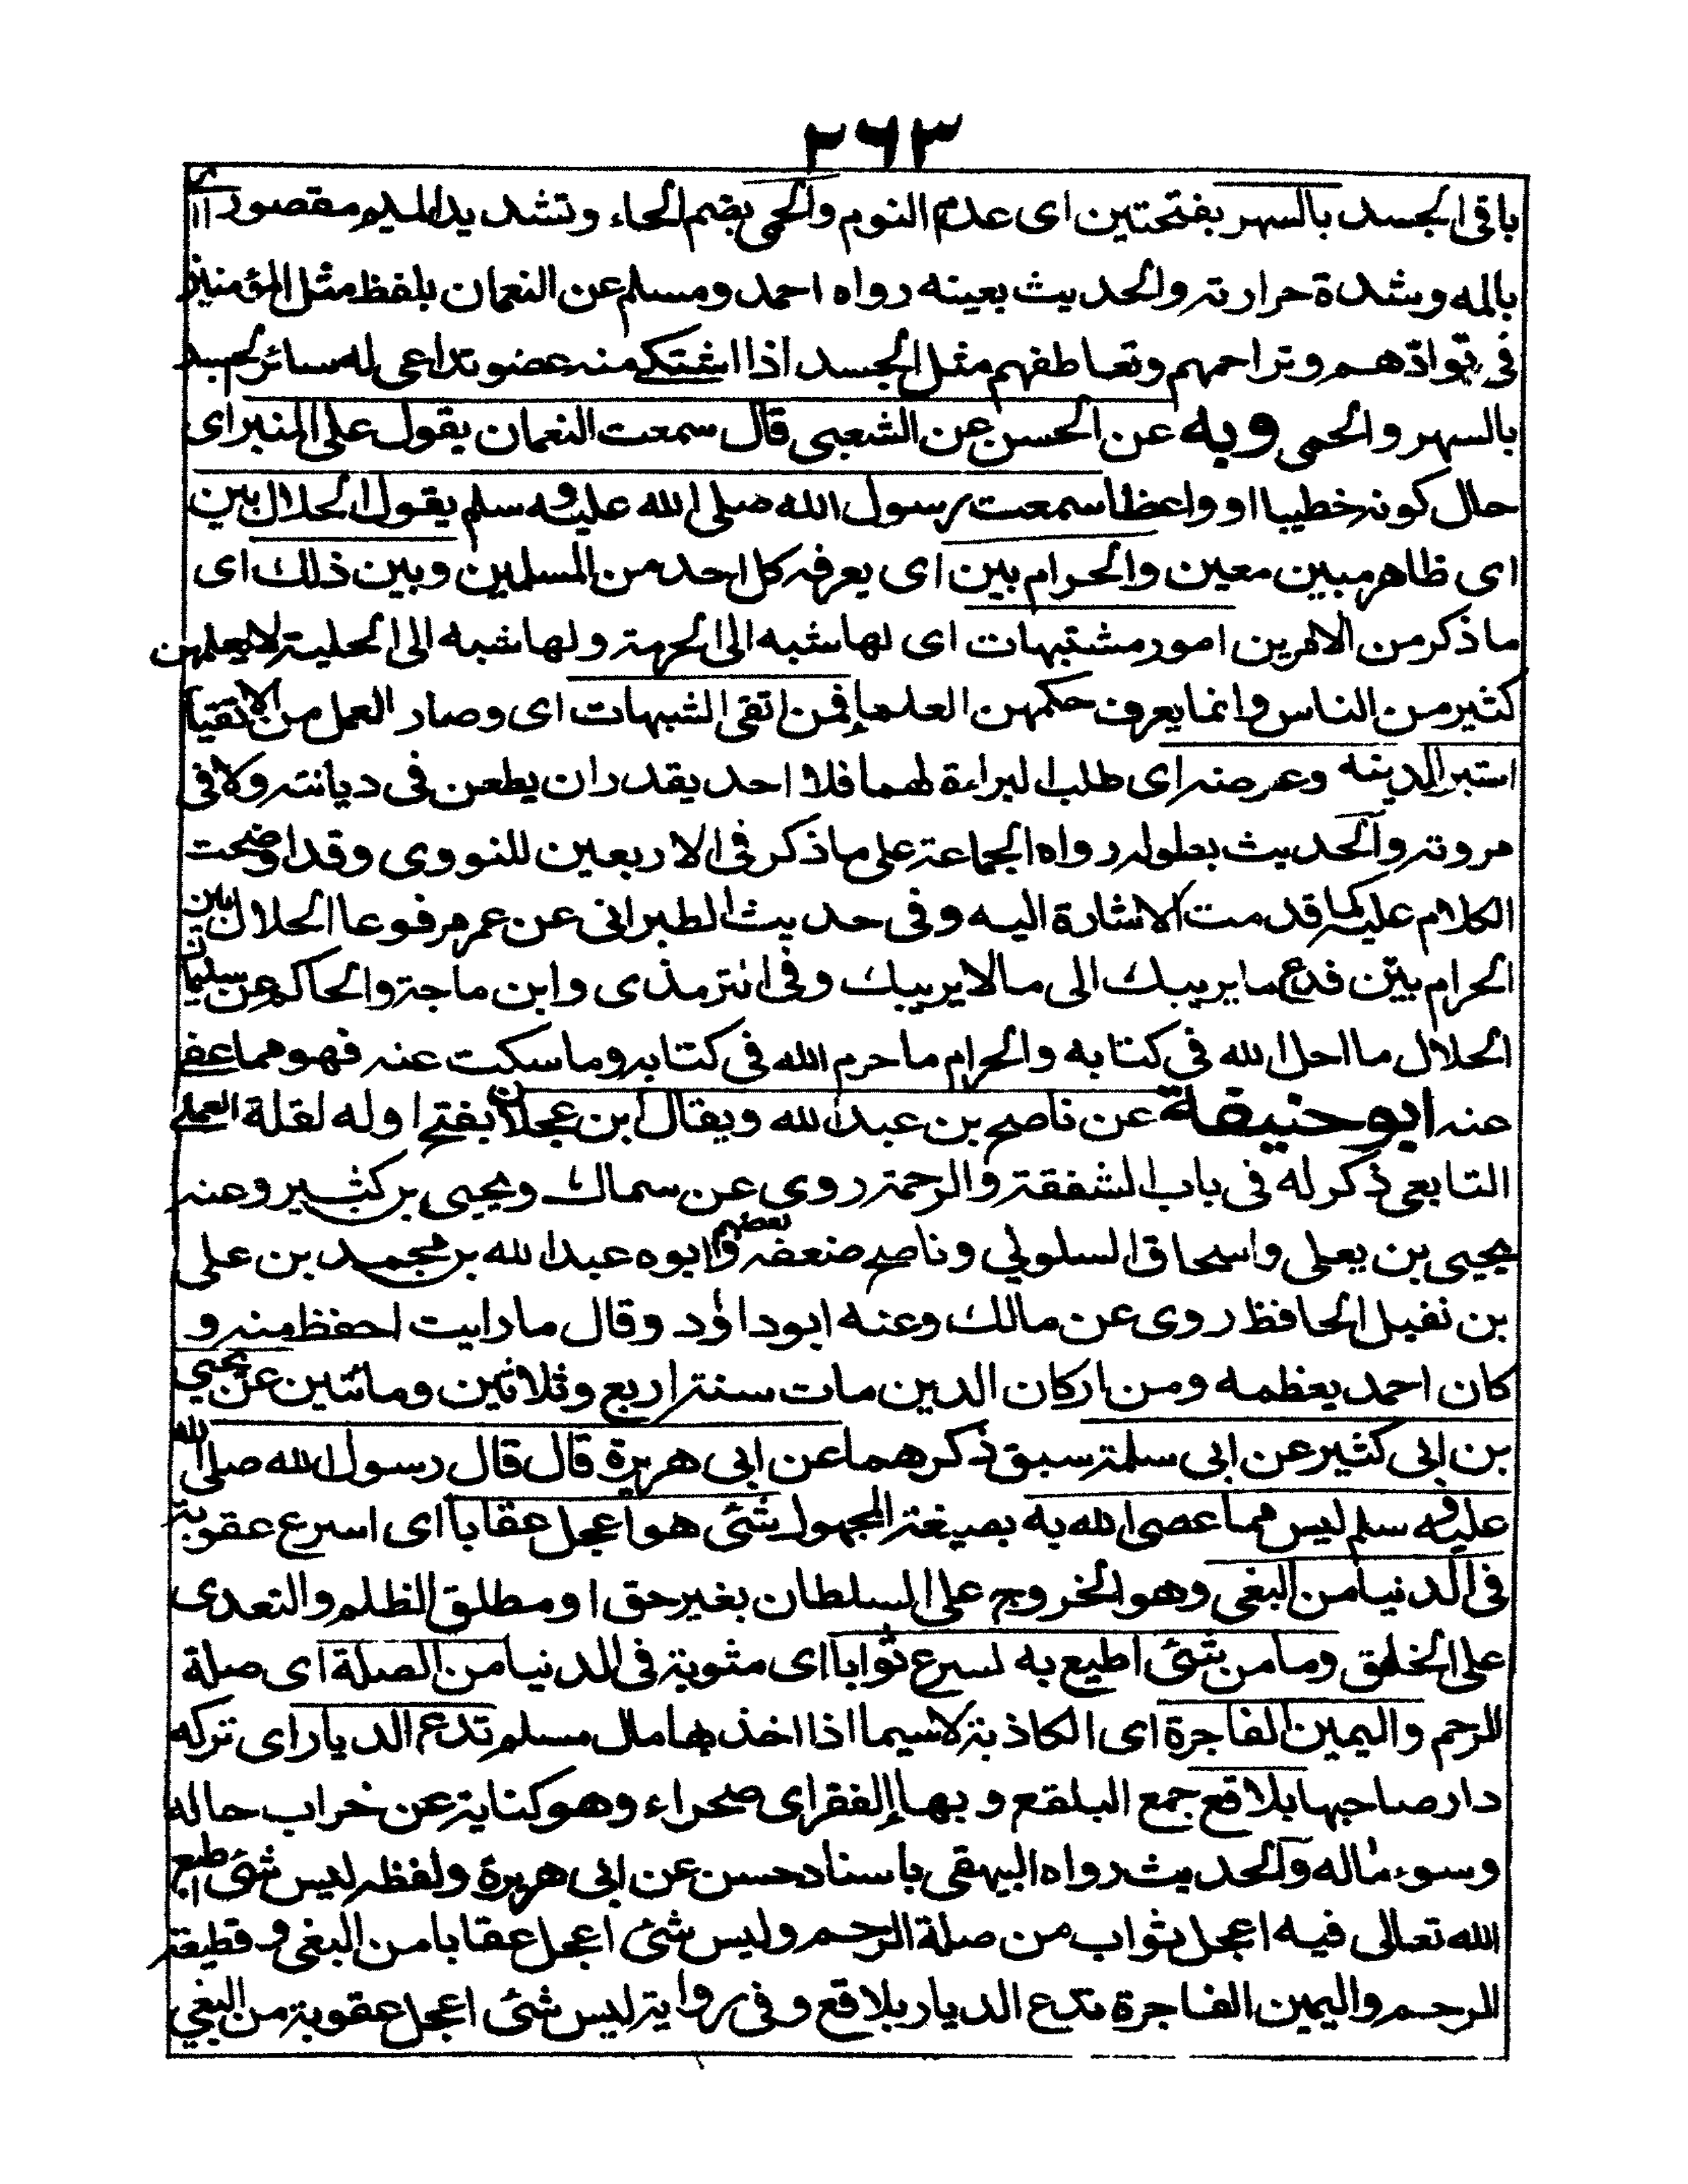 ٢٦٣
باقى الجسد بالسهر بفتحتين اى عدم النوم والحمى بضم الحاء وتشديد الميم مقصورا اى
بالمه وشدة حرارته والحديث بعينه رواه احمد ومسلم عن النعمان بلفظ مثل المؤمنين
فى توادهم وتراحمهم وتعاطفهم مثل الجسد اذا اشتكى منه عضو تداعى له سائر الجسد
بالسهر والحمى وبه عن الحسن عن الشعبى قال سمعت النعمان يقول على المنبر اى
حال كونه خطيبا او واعظا سمعت رسول الله صلى الله عليه وسلم يقول الحلال بين
اى ظاهر مبين معين والحرام بين اى يعرفه كل احد من المسلمين وبين ذلك اى
ما ذكر من الامرين امور مشتبهات اى لها شبه الى الحرمة ولها شبه الى الحلية لا يعلمهن
كثير من الناس وانما يعرف حكمهن العلماء فمن اتقى الشبهات اى وصار العمل من الاتقياء
استبرا لدينه وعرضه اى طلب البراءة لهما فلا احد يقدر ان يطعن فى ديانته ولا فى
مروته والحديث بطوله رواه الجماعة على ما ذكر فى الاربعين للنووى وقد اوضحت
الكلام عليه كما قدمت الاشارة اليه وفى حديث الطبرانى عن عمر مرفوعا الحلال بين
الحرام بيّن فدع ما يريبك الى ما لا يريبك وفى الترمذى وابن ماجة والحاكم عن سليمان
الحلال ما احل الله فى كتابه والحرام ما حرم الله فى كتابه وما سكت عنه فهو مما عفى
عنه ابو حنيفة عن ناصح بن عبد الله ويقال ابن عجلان بفتح اوله لقلة العملى
التابعى ذكر له فى باب الشفقة والرحمة روى عن سماك ويحيى بن كثير وعنه
يحيى بن يعلى واسحاق السلولي وناصح ضعفه بعضهم وابوه عبد الله بن محمد بن على
بن نفيل الحافظ روى عن مالك وعنه ابو داؤد وقال ما رايت احفظ منه و
كان احمد يعظمه ومن اركان الدين مات سنة اربع وثلاثين ومائتين عن يحيى
بن ابى كثير عن ابى سلمة سبق ذكرهما عن ابى هريرة قال قال رسول الله صلى الله
عليه وسلم ليس مما عصى الله به بصيغة المجهول شئ هو اعجل عقابا اى اسرع عقوبة
فى الدنيا من البغى وهو الخروج على السلطان بغير حق او مطلق الظلم والتعدى
على الخلق وما من شئ اطيع به اسرع ثوابا اى مثوبة فى الدنيا من الصلة اى صلة
للرحم واليمين الفاجرة اى الكاذبة لا سيما اذا اخذ بها مال مسلم تدع الديار اى تتركه
دار صاحبها بلاقع جمع البلقع و بهاء الفقراى صحراء وهو كناية عن خراب حاله
وسوء ماله والحديث رواه البيهقى باسناد حسن عن ابى هريرة ولفظه ليس شئ اطيع
الله تعالى فيه اعجل بثواب من صلة الرحم وليس شئ اعجل عقابا من البغى و قطيعة
الرحم واليمين الفاجرة تدع الديار بلاقع و فى رواية ليس شئ اعجل عقوبة من البغي